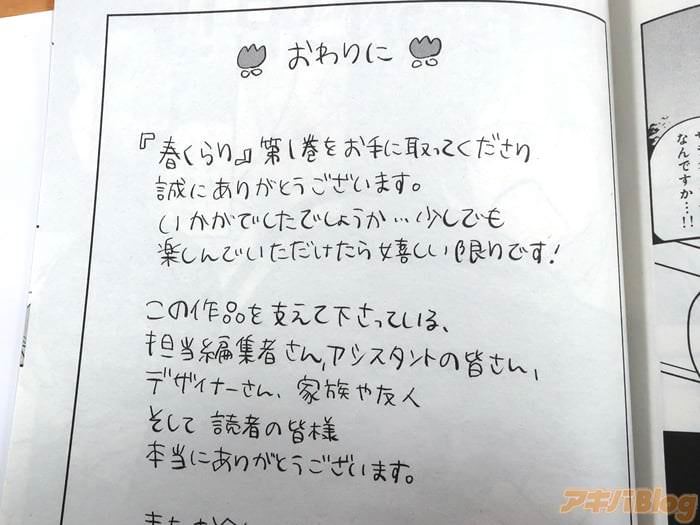 おわりに
『春くらり』第1巻をお手に取ってくださり
誠にありがとうございます。
いかがでしたでしょうか…少しでも
楽しんでいただけたら嬉しい限りです!
この作品を支えて下さっている、
担当編集者さん、アシスタントの皆さん、
デザイナーさん、家族や友人
そして読者の皆様
本当にありがとうございます。
なんですか…!!
アキバBlog